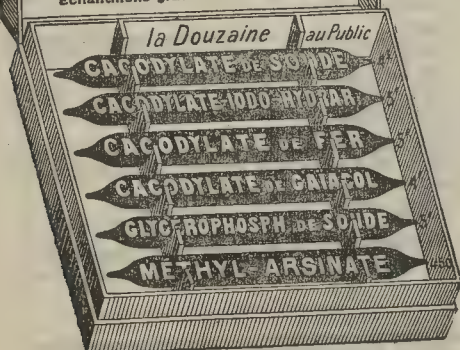 échantillons
la Douzaine au Public
CACODYLATE DE SOUDE
CACODYLATE-IODO-HYDRAR
CACODYLATE DE FER
CACODYLATE DE GAIACOL
GLYCEROPHOSPH DE SOUDE
METHYL-ARSINATE